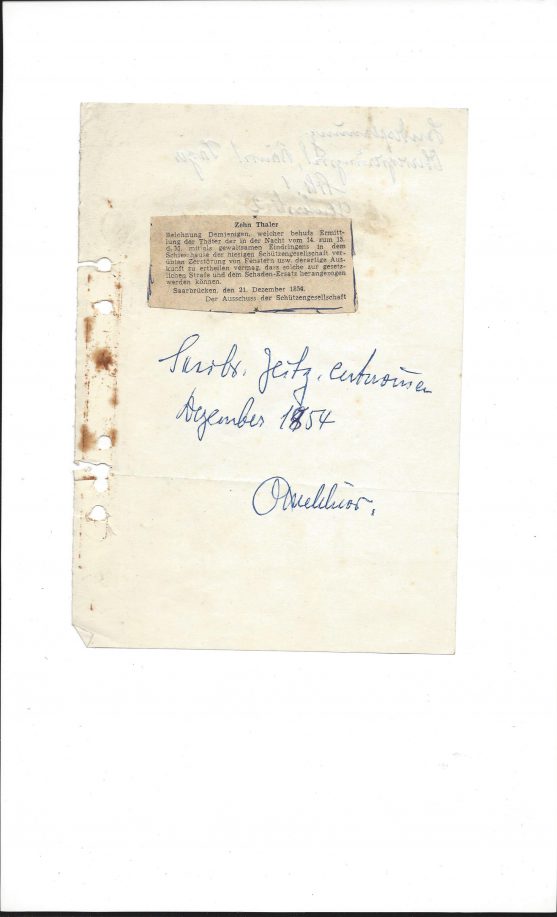 Zehn Thaler
Belohnung Demjenigen, welcher behufs Ermitt-
lung der Thäter der in der Nacht vom 14. zum 15.
d. M. mittels gewaltsamen Eindringens in dem
Schiesshause der hiesigen Schützengesellschaft ver-
übten Zerstörung von Fenstern usw. derartige Aus-
kunft zu ertheilen vermag, dass solche zur gesetz-
lichen Strafe und dem Schaden-Ersatz herangezogen
werden können.
Saarbrücken, den 21. Dezember 1854.
Der Ausschuss der Schützengesellschaft
Saarbr. Zeitg. entnommen
Dezember 1854